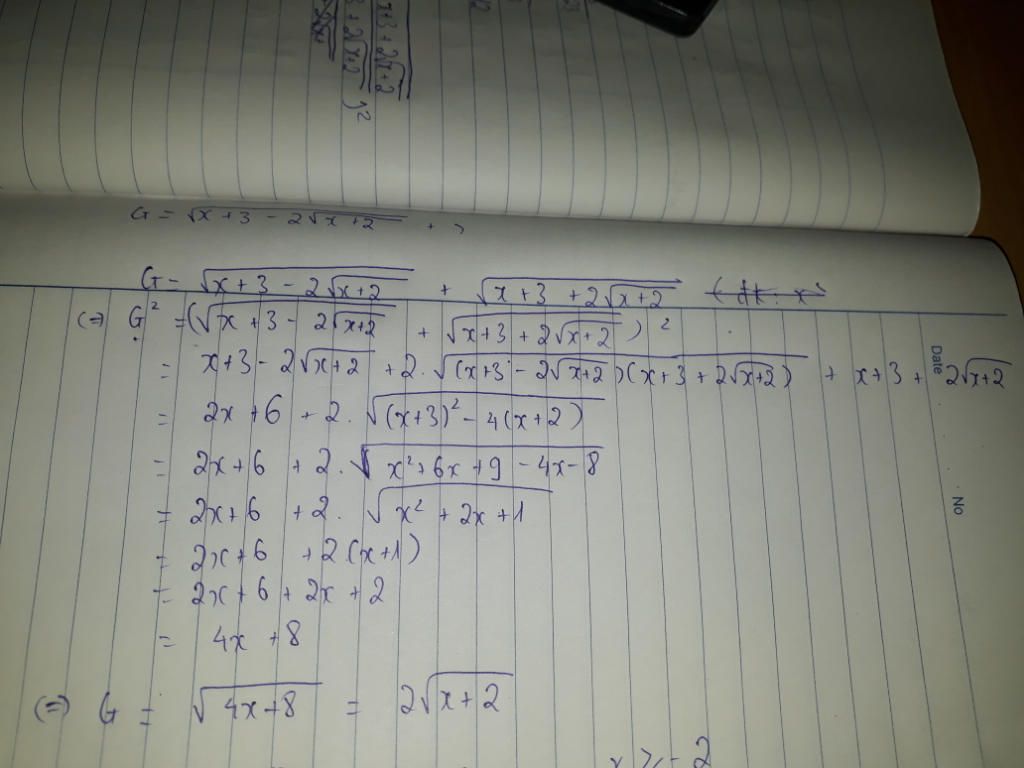 x+3 + 2√x+2
3 + 2√x+2 )²
G = √x+3 - 2√x+2 +
G = √(x+3 - 2√(x+2)) + √(x+3 + 2√(x+2))
(=) G² = (√(x+3 - 2√(x+2)) + √(x+3 + 2√(x+2)))²
= x+3 - 2√(x+2) + 2.√((x+3 - 2√(x+2))(x+3 + 2√(x+2))) + x+3 + 2√(x+2)
= 2x+6 + 2.√((x+3)² - 4(x+2))
= 2x+6 + 2.√(x²+6x+9-4x-8)
= 2x+6 + 2.√(x²+2x+1)
= 2x+6 + 2(x+1)
= 2x+6+2x+2
= 4x+8
(=) G = √(4x+8) = 2√(x+2)
x ≥ -2
Date
No